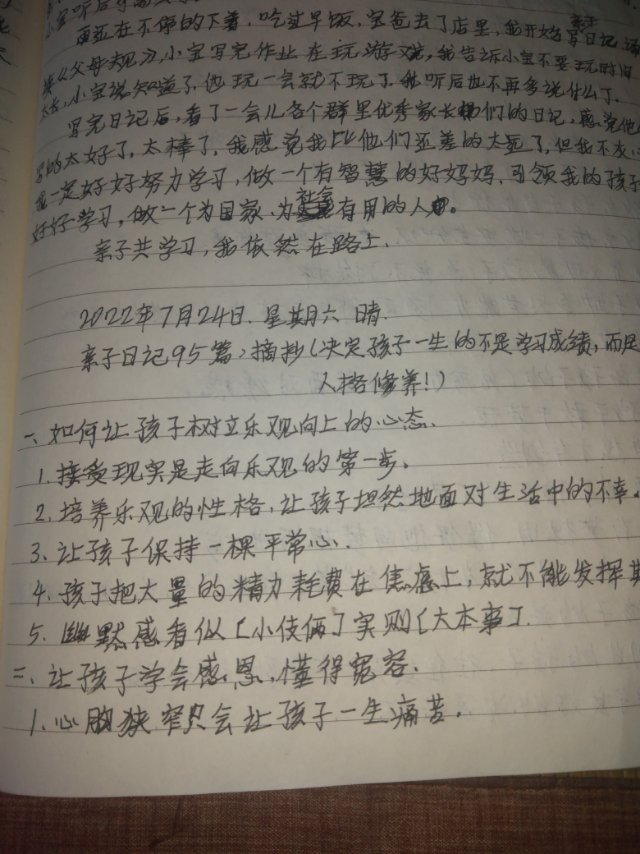 小宝听后
雨还在不停的下着，吃过早饭，宝爸去了店里，我开始写亲子日记，
《父母规》，小宝写完作业在玩游戏，我告诉小宝不要玩时间
太长，小宝说知道了，他玩一会就不玩了。我听后也不再多说什么了。
写完日记后，看了一会儿各个群里优秀家长们的日记，感觉他
写的太好了，太棒了，我感觉我比他们还差的太远了，但我不灰
我一定好好努力学习，做一个有智慧的好妈妈，引领我的孩子
好好学习，做一个为国家、为社会有用的人。
亲子共学习，我依然在路上.
2022年7月24日. 星期六 晴.
亲子日记95篇》摘抄(决定孩子一生的不是学习成绩，而是
人格修养!)
一、如何让孩子树立乐观向上的心态.
1. 接受现实是走向乐观的第一步。
2. 培养乐观的性格，让孩子坦然地面对生活中的不幸。
3. 让孩子保持一棵平常心.
4. 孩子把大量的精力耗费在焦虑上，就不能发挥其
5. 幽默感看似[小伎俩]实则[大本事].
二、让孩子学会感恩，懂得宽容.
1. 心胸狭窄只会让孩子一生痛苦.